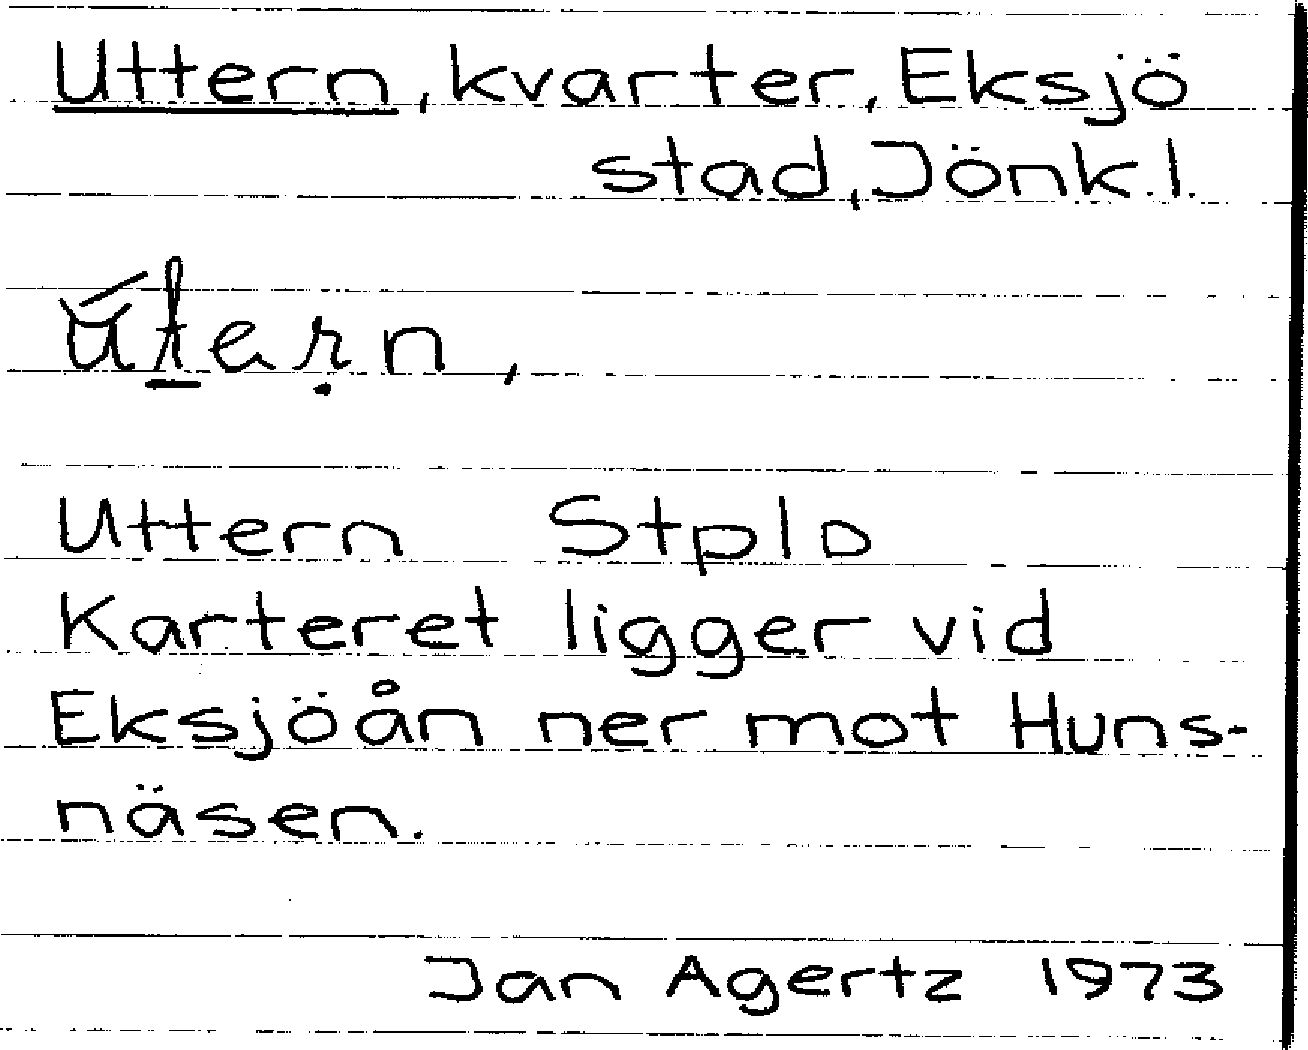 Uttern, kvarter, Eksjö
stad, Jönk.l.
Uttern Stpl D
Karteret ligger vid
Eksjöån ner mot Huns-
näsen.
Jan Agertz 1973